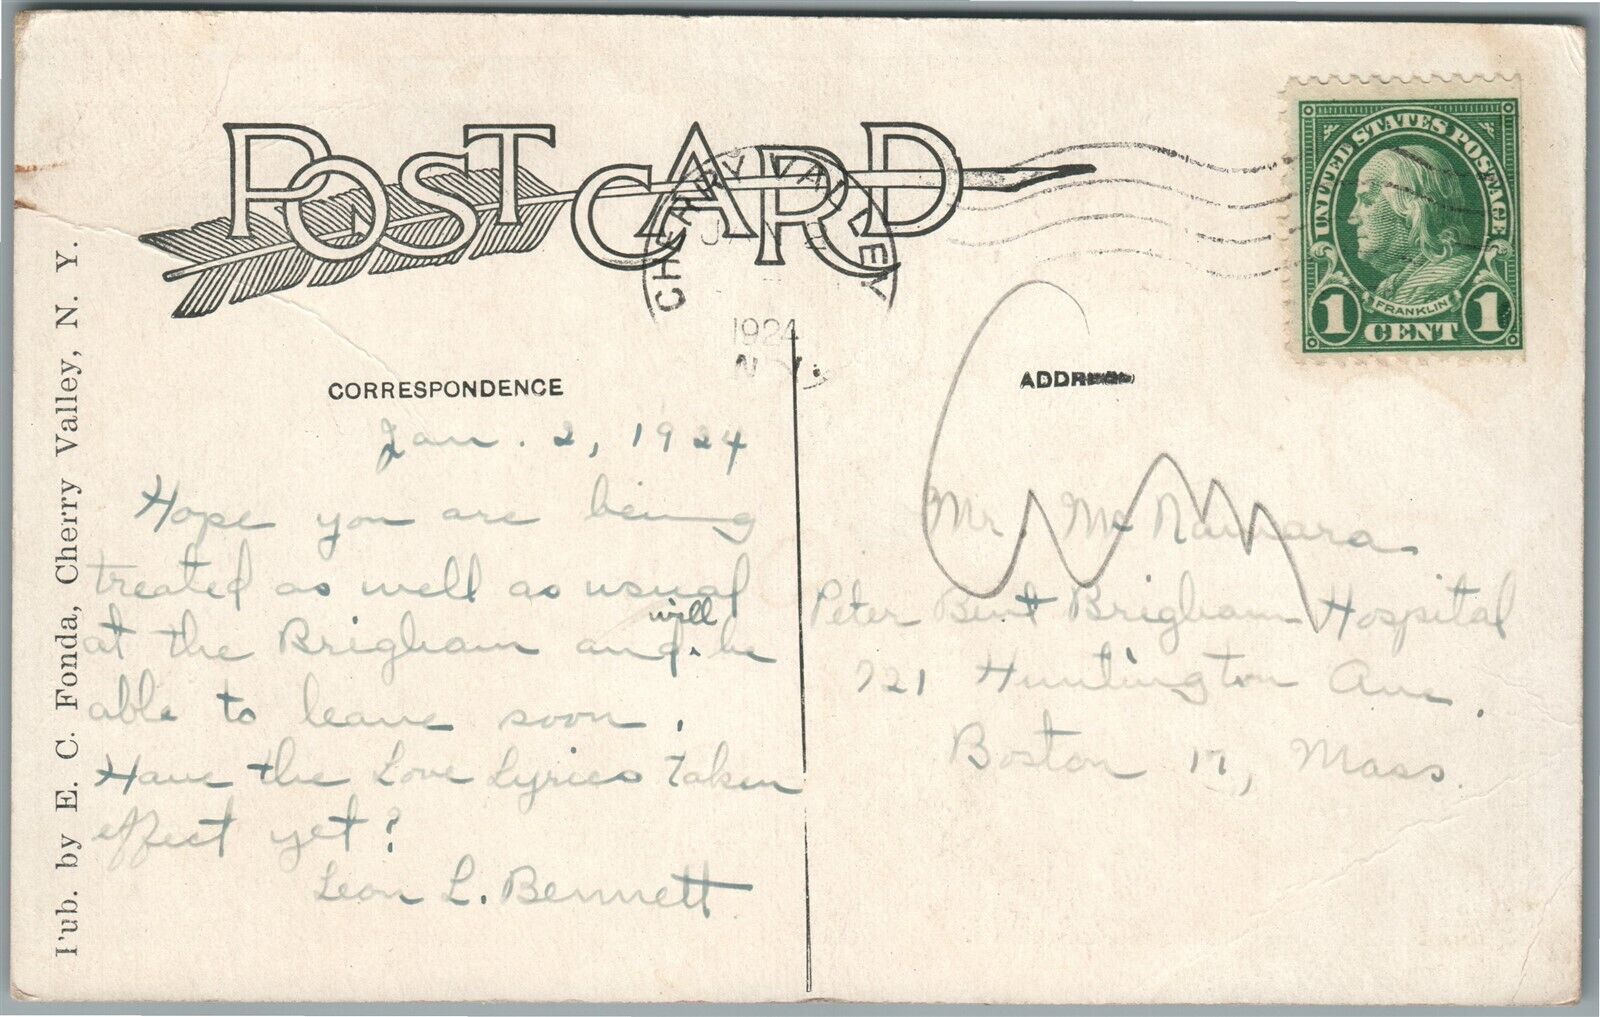 POST CARD
CHERRY VALLEY
1924
N.Y.
UNITED STATES POSTAGE
FRANKLIN
1 CENT 1
CORRESPONDENCE
Jan. 2, 1924
Hope you are being
treated as well as usual
at the Brigham and will be
able to leave soon.
Have the Love Lyrics taken
effect yet?
Leon L. Bennett
Mr. McNamara
Peter Bent Brigham Hospital
721 Huntington Ave.
Boston 17, Mass.
Pub. by E. C. Fonda, Cherry Valley, N. Y.